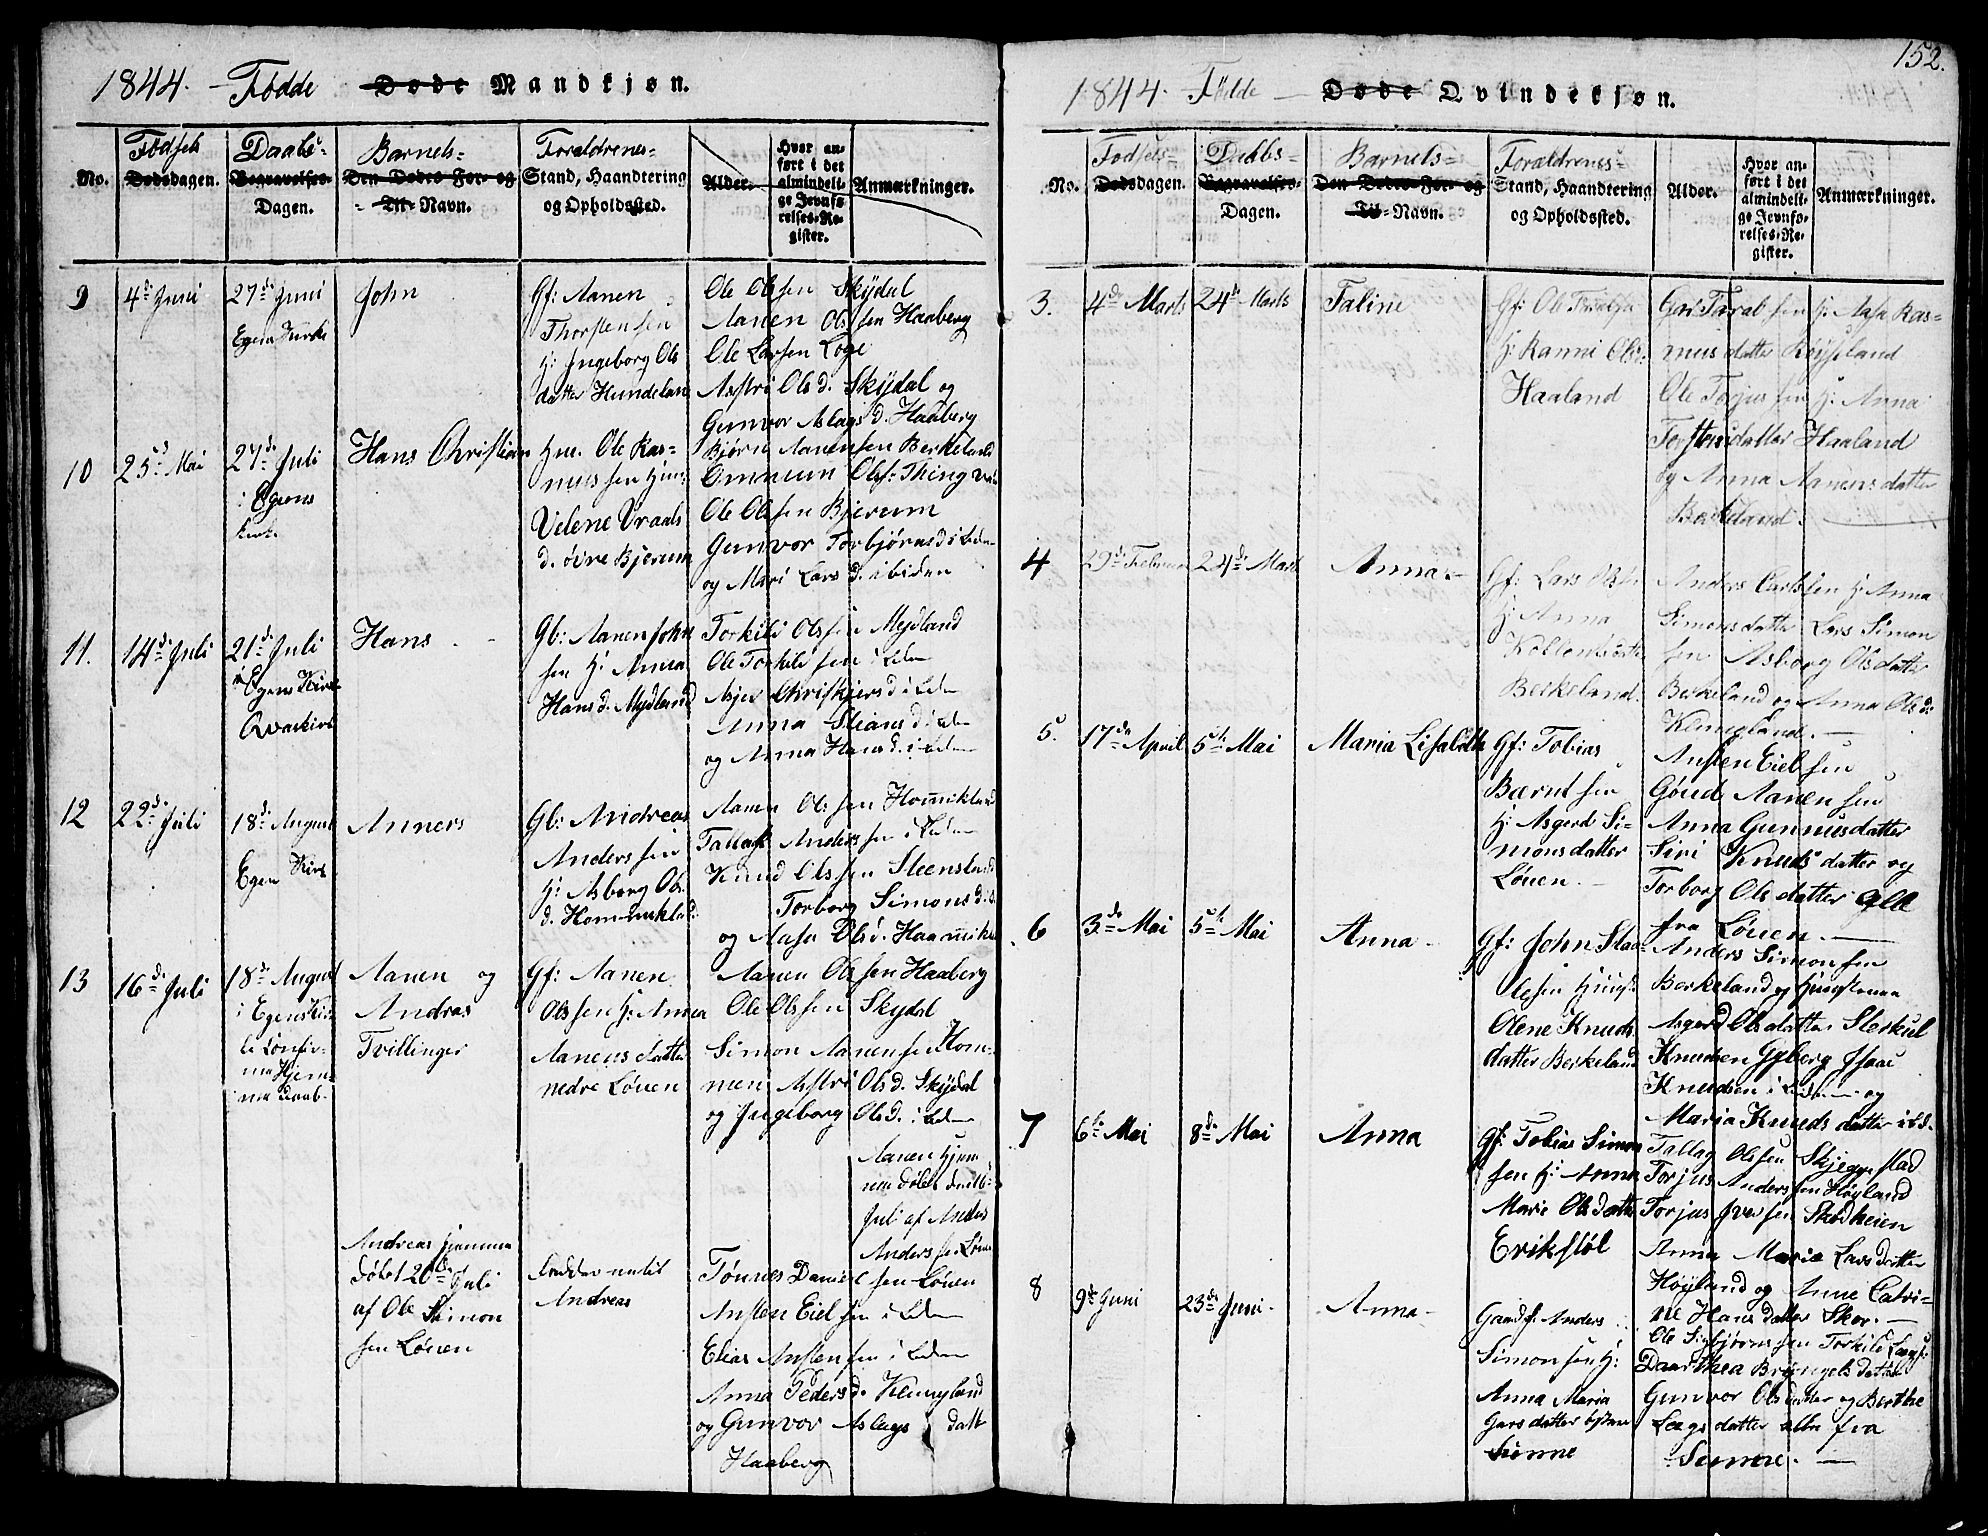 1844. Fødde Døde Mandkjøn.
No.
Fødsels
Dødsdagen.
Daabs-
Begravelses-
Dagen.
Barnets-
Den Dødes For- og
Til-Navn.
Forældrenes-
Stand, Haandtering
og Opholdssted.
Alder.
Hvor an-
ført i det
almindeli-
ge Jevnfø-
relses-Re-
gister.
Anmærkninger.
9
4de Juni
27de Juni
John
Gf: Aanen
Thorstensen
H: Ingeborg Ols
datter Hundeland
Ole Olssen Skydal
Aanen Olssen Haaberg
Ole Larsen Loge
Astri Olsd. Skydal og
Gunvor Aslags d. Haaberg
10
25de Mai
27de Juli
i Egens
Kirke
Hans Christian
Hm. Ole Ras-
mussen Hun:
Velene Vraals
d. øvre Bjerum
Bjørn Aanensen Berkeland
Ommum Olss: Thingva
Ole Olssen Bjerum
Gunvor Torbjørnsd ibidem
og Mari Lars d. ibiden
11.
14de Juli
21de Juli
i Egens Kirke
Qvaskirk
Hans
Gb: Aanen John
sen H: Anna
Hans d. Mydland
Torkild Olssen Mydland
Ole Torkildsen ibidem
Anna Stians d ibidem
og Anna Hans d. ibidem
12
22de Juli
18de August
Egen Kirk
Anners
Gb: Andreas
Anderssen
H: Asborg Ols
d. Hommekland
Aanen Olssen Hommekland
Tallag Anderssen ibidem
Knud Olssen Steensland
Torborg Simons d. i
og Aase Olsd. Haamikl
13
16de Juli
18de August
i Egens Kir
Hjem
me daab.
Aanen og
Andreas
Tvillinger
Gf: Aanen
Olssen H: Anna
Aanensdatter
nedre Løuen
Aanen Olssen Haaberg
Ole Olssen Skydal
Simon Aanensen Hom-
men Astri Olsd. Skydal
og Ingeborg Olsd. ibidem
Aanen Hjem
me døbt
Juli af Anders
Anderssen Løuen
Andreas hjemme
døbt 20de Juli
af Ole Simon
sen Løuen
Faddere til
Andreas
Tønnes Danielsen Løuen
Ansten Eielsen ibidem
Elias Anstensen ibidem
Anna Peders d. Klungland
og Gunvor Aslags datt
Haaberg
152.
1844. Fødde Døde Qvindekjøn.
No.
Fødsels-
Dødsdagen.
Dabbs-
Begravelses-
Dagen.
Barnets-
Den Dødes For- og
Til-Navn.
Forældrenes-
Stand, Haandtering
og Opholdssted.
Alder.
Hvor an-
ført i det
almindeli-
ge Jevnfø-
relses-Re-
gister.
Anmærkninger.
3.
4de Marts
24de Marts
Taline
Gf: Ole
H: Ranni Ols
Haaland
Taralsen H: Aasa Ras-
musdatter Røyseland
Ole Torjussen H: Anna
Torstensdatter Haaland
og Anna Aanensdatter
Berkeland.
4
29de Februar
24de Marts
Anna.
Gf: Lars Ols
H: Anna
Berkeland.
Anders Carlssen H: Anna
Simonsdatter Lars Simon
sen Asborg Olsdatter
Berkeland og Anna Olsd:
Klungland.
5.
17de April
5te Mai
Maria Lisabeth
Gf: Tobias
Bærntsen
H: Asgerd Si-
monsdatter
Løuen.
Ansten Eielsen
Goud Aanensen
Anna Gunnusdatter
Siri Knudsdatter og
Torborg Olsdatter alle
fra Løuen.
6
3de Mai
5te Mai
Anna
Gf: John
Olene Knuds
datter Berkeland
Anders Simonsen
Berkeland og
Asgerd Olsdatter
Knudsen Gyberg Isaac
Knudsen ibidem og
Maria Knudsdatter ibd.
7
6te Mai
8de Mai
Anna
Gf: Tobias Simon
sen H: Anna
Marie Olsdatter
Erikstøl
Tallag Olssen Skjeggestad
Torjus Anderssen Høyland
Torjus Iversen Skodheien
Anna Marie Larsdatter
Høyland og Anne Catri-
ne Hansdatter Skor.
8
9de Juni
23de Juni.
Anna
Gaardf: Anders
Simonsen H:
Anna Maria
Sunne
Ole Sigbjørnssen Torkild
Daarthea Bryngelsdatter
Gunvor Olsdatter og Berthe
datter alle fra
Sunne.